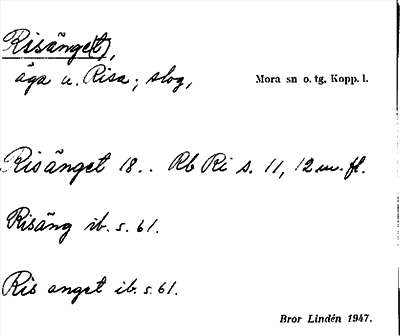 Risänge(t),
äga u. Risa; slog,
Mora sn o. tg, Kopp. l.
Risänget 18.. Rb Ri s. 11, 12 m. fl.
Risäng ib. s. 61.
Ris anget ib. s. 61.
Bror Lindén 1947.